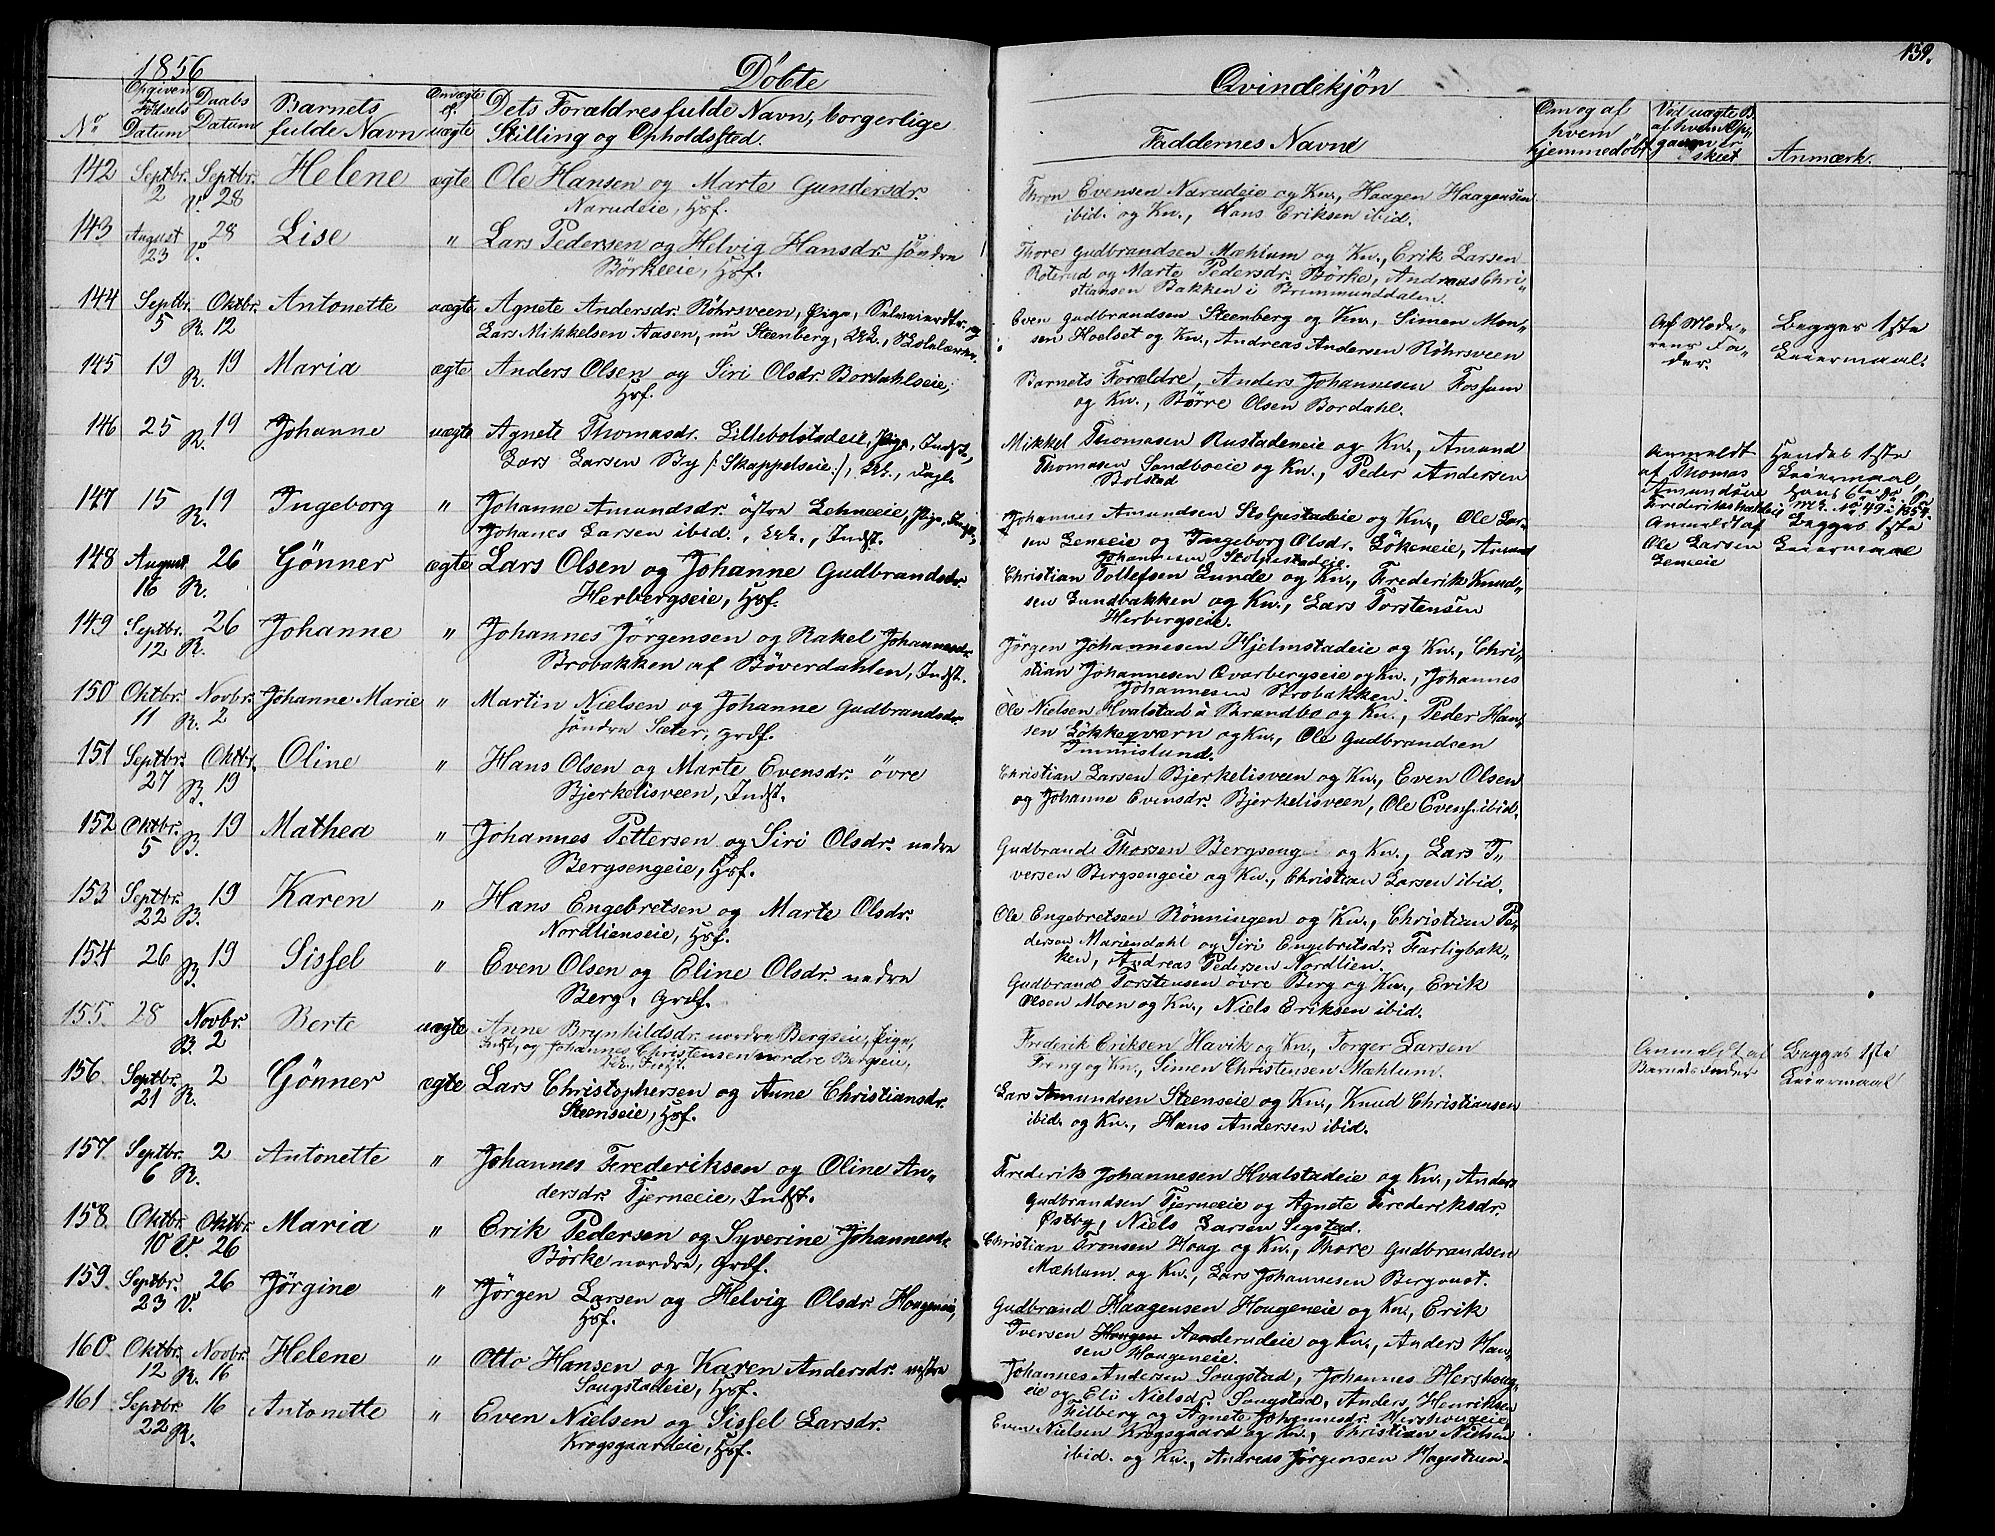 1856
Döbte
Qvindekjön
139.
No
Opgiven Födsels Datum
Daabs Datum
Barnets fulde Navn
Om ægte el. uægte
Dets Forældres fulde Navn, borgerlige Stilling og Opholdssted.
Faddernes Navne
Om og af hvem hjemmedöbt
Ved uægte B. af hvem Opgaven er skeet
Anmærk.
142 Septbr. 2 Septbr. V. 28 Helene ægte Ole Hansen og Marte Gundersdr.
Narudeie, Hsf.
Thron Evensen Narudeie og Kn., Haagen Haagensen
ibid. og Kn., Hans Eriksen ibid.
143 August 23 V. 28 Lise " Lars Pedersen og Helvig Hansdr. söndre
Börkeeie, Hsf.
Thore Gudbrandsen Mæhlum og Kn., Erik Larsen
Roterud og Marte Pedersdr. Börke, Andreas Chri"
stiansen Bakken i Brummunddalen.
144 Septbr. 5 Oktbr. R. 12 Antonette uægte Agnete Andersdr. Röhrsveen, Pige, Selveierdtr. og
Lars Mikkelsen Aasen, nu Steenberg, Ukl., Skolelærer.
Even Gudbrandsen Steenberg og Kn., Simen Mon"
sen Hoelset og Kn., Andreas Andersen Röhrsveen
Af Mode"
rens Fa"
der.
Begges 1ste
Leiermaal.
145 19 R. 19 Maria ægte Anders Olsen og Siri Olsdr. Bordahlseie,
Hsf.
Barnets Forældre, Anders Johannesen Fossum
og Kn., Börre Olsen Bordahl.
146 25 R. 19 Johanne uægte Agnete Thomasdr. Lillebolstadeie, Pige, Indst.,
Lars Larsen By /: Skappelseie :/, Ukl., Dagl.
Mikkel Thomasen Rustadeneie og Kn., Amund
Thomasen Sandboeie og Kn., Peder Andersen
Bolstad
Anmeldt
af Thomas
Amundsen
Frederikeshaldeie
Hendes 1ste
Leiermaal,
147 15 R. 19 Ingeborg " Johanne Amundsdr. östre Lehneeie, Pige, Indst.,
Johanes Larsen ibid., Ukl., Indst.
Johannes Amundsen Stolpestadeie og Kn., Ole Lar"
sen Leneeie og Ingeborg Olsdr. Lökeneie, Amund
Johannesen Stolpestadeie.
Anmeldt af
Ole Larsen
Leneeie
Begges 1ste
Leiermaal
148 August 16 R. 26 Gönner ægte Lars Olsen og Johanne Gudbrandsdr.
Herbergseie, Hsf.
Christian Tollefsen Lunde og Kn., Frederik Knud"
sen Lundbakken og Kn., Lars Torstensen
Herbergseie.
149 Septbr. 12 R. 26 Johanne " Johannes Jörgensen og Rakel Johannesdr.
Brobakken af Böverdahlen, Indst.
Jörgen Johannesen Hjelmstadeie og Kn., Chri"
stian Johannesen Qvarbergseie og Kn., Johannes
Johannesen Brobakken.
150 Oktbr. 11 Novbr. R. 2 Johanne Marie " Martin Nielsen og Johanne Gudbrandsdr.
söndre Sæter, Grdf.
Ole Nielsen Hvalstad à Brandbo og Kn., Peder Han"
sen Lökkeqværn og Kn., Ole Gudbrandsen
Immislund.
151 Septbr. 27 Oktbr. B. 19 Oline " Hans Olsen og Marte Evensdr. övre
Bjerkelisveen, Indst.
Christian Larsen Bjerkelisveen og Kn., Even Olsen
og Johanne Evensdr. Bjerkelisveen, Ole Evens. ibid.
152 Oktbr. 5 B. 19 Mathea " Johannes Pettersen og Siri Olsdr. nedre
Bergsengeie, Hsf.
Gudbrand Thorsen Bergsenge og Kn., Lars I"
versen Bergsengeie og Kn., Christian Larsen ibid.
153 Septbr. 22 B. 19 Karen " Hans Engebretsen og Marte Olsdr.
Nordlienseie, Hsf.
Ole Engebretsen Rönningen og Kn., Christian Pe"
dersen Mariendahl og Siri Engebretsdr. Farligbak"
ken, Andreas Pedersen Nordlien.
154 26 B. 19 Sissel " Even Olsen og Eline Olsdr. nedre
Berg, Grdf.
Gudbrand Torstensen övre Berg og Kn., Erik
Olsen Moen og Kn., Niels Eriksen ibid.
155. 28 Novbr. B. 2 Berte uægte Anne Brynhildsdr. nordre Bergseie, Pige,
Indst., og Johannes Christensen nordre Bergseie,
Ukl., Indst.
Frederik Eriksen Havik og Kn., Torger Larsen
Freng og Kn., Simen Christensen Mæhlum.
Anmeldt af
Barnets Fader
Begges 1ste
Leiermaal
156. Septbr. 21 R. 2 Gönner ægte Lars Christophersen og Anne Christiansdr.
Steenseie, Hsf.
Lars Amundsen Steenseie og Kn., Knud Christiansen
ibid. og Kn., Hans Andersen ibid.
157. Septbr. 6 R. 2 Antonette " Johannes Frederiksen og Oline An"
dersdr. Tjerneeie, Indst.
Frederik Johannesen Hvalstadeie og Kn., Anders
Gudbrandsen Tjerneeie og Agnete Frederiksdr.
Östby, Niels Larsen Sigstad.
158. Oktbr. 10 Oktbr. V. 26 Maria " Erik Pedersen og Syverine Johannesdr.
Börke nordre, Grdf.
Christian Tronsen Houg og Kn., Thore Gudbrandsen
Mæhlum og Kn., Lars Johannesen Bergvust.
159. Septbr. 23 V. 26 Jörgine " Jörgen Larsen og Helvig Olsdr. Hougeneie,
Hsf.
Gudbrand Haagensen Hougeneie og Kn., Erik
Iversen Hougen Aanderudeie og Kn., Anders Han"
sen Hougeneie.
160. Oktbr. 12 Novbr. R. 16 Helene " Otto Hansen og Karen Andersdr. vestre
Sougstadeie, Hsf.
Johannes Andersen Sougstad, Johannes Hershoug"
eie og Eli Nielsdr. Sougstad, Anders Henriksen
Filberg og Agnete Johannesdr. Hershougeie,
161 Septbr. 22 R. 16 Antonette " Even Nielsen og Sissel Larsdr.
Krogsgaardeie, Hsf.
Even Nielsen Krogsgaard og Kn., Christian Nielsen
ibid. og Kn., Andreas Jörgensen Hagestuen.